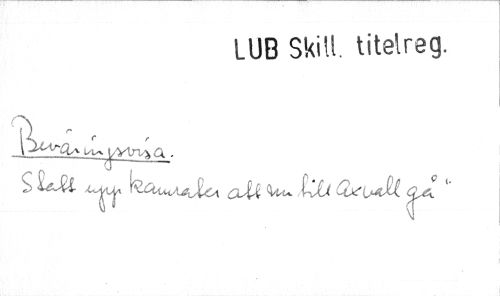 LUB Skill. titelreg.
Beväringsvisa.
Stått upp kamrater att nu till Axvall gå"